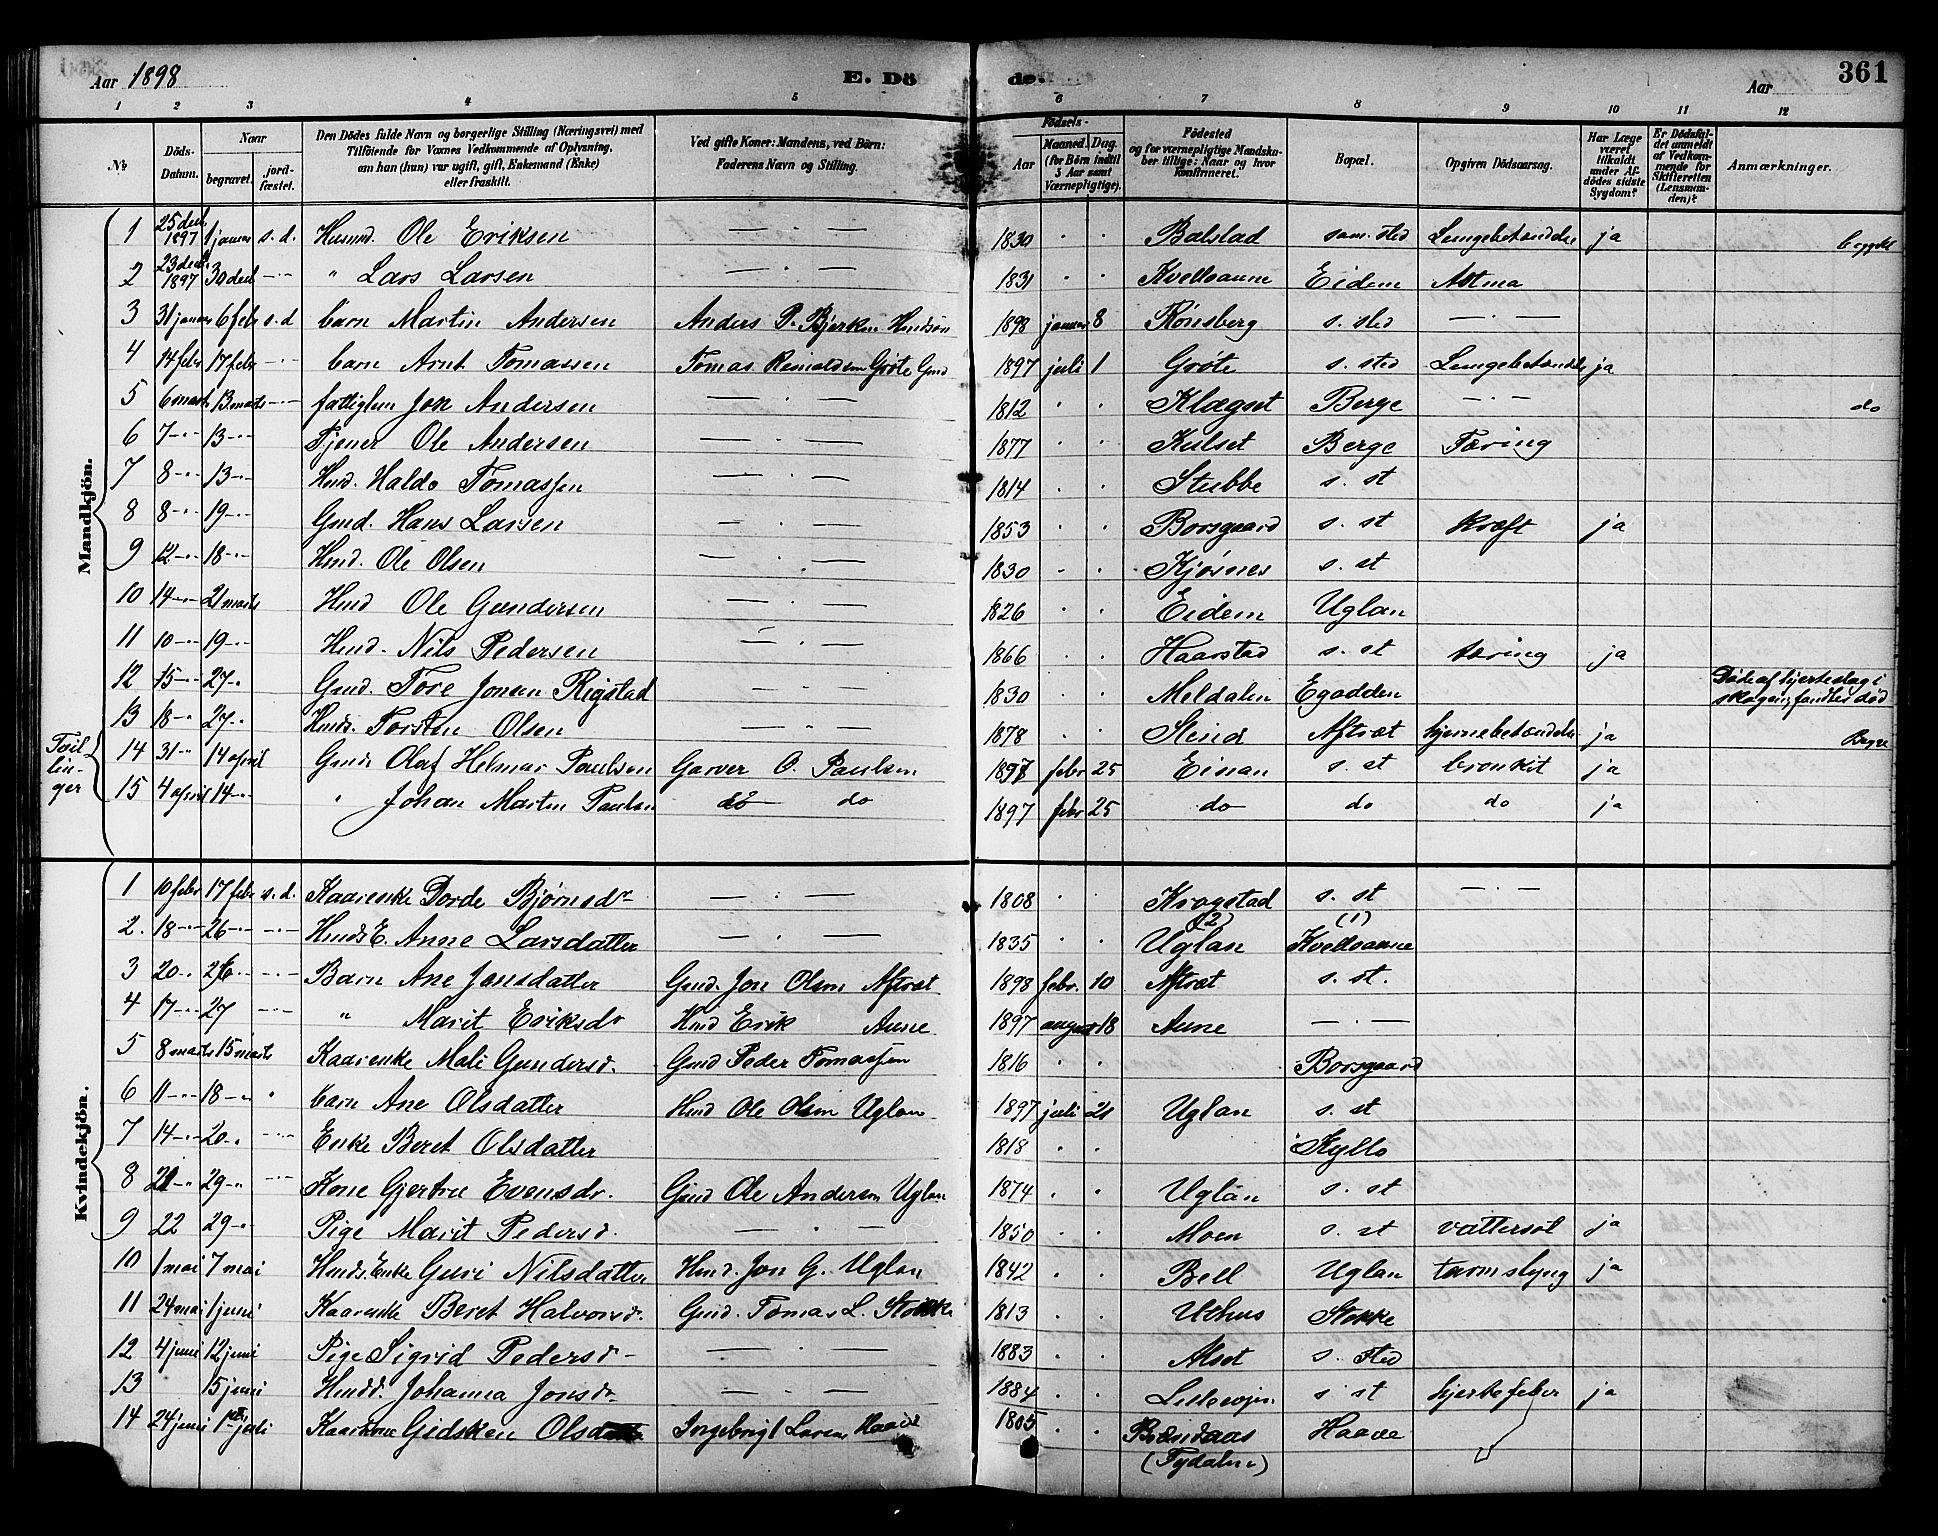 Aar 1898
E. Dö
de.
Aar
361
1 2 3 4 5 6 7 8 9 10 11 12
No
Döds-Datum.
Naar
begravet.
jordfæstet.
Den Dödes fulde Navn og borgerlige Stilling (Næringsvei) med
Tilföiende for Voxnes Vedkommende af Oplysning,
om han (hun) var ugift, gift, Enkemand (Enke)
eller fraskilt.
Ved gifte Koner: Mandens, ved Börn:
Faderens Navn og Stilling.
Födsels-
Aar
Maaned. Dag.
(for Börn indtil
5 Aar samt
Værnepligtige).
Födested
og for værnepligtige Mandskaber tillige: Naar og hvor
konfirmeret.
Bopæl.
Opgiven Dödsaarsag.
Har Læge
været
tilkaldt
under Afdödes sidste
Sygdom?
Er Dödsfaldet anmeldt
af Vedkommende for
Skifteretten
(Lensmanden)?
Anmærkninger.
Mandkjön.
1 25 decb 1897 1 januar s. d. Husmd. Ole Eriksen — · — 1830 · · Balstad sam. sted Lungebetændelse ja
2 23 decb 1897 30 decb —·— " Lars Larsen — · — 1831 · · Kvelloaune Eidem Astma
3 31 januar 6 febr s. d barn Martin Andersen Anders P. Bjerken 1898 januar 8 Rønsberg s. sted — · —
4 14 febr 17 febr —·— barn Arnt Tomassen Tomas Reinoldsen Grøte Gmd 1897 juli 1 Grøte s. sted Lungebetændelse ja
5 6 marts 13 marts —·— fattiglem Jon Andersen — · — 1812 · · Klægset Berge — · — do
6 7 —·— 13 —·— Tjener Ole Andersen — · — 1877 · · Kulset Berge Tæring
7 8 —·— 13 —·— Hmd. Haldo Tomassen — · — 1814 · · Stubbe s. st
8 8 —·— 19 —·— Gmd. Hans Larsen — · — 1853 · · Borsgaard s. st Kræft ja
9 12 —·— 18 —·— Hmd. Ole Olsen — · — 1830 · · Kjøsnes s. st
10 14 —·— 21 marts Hmd Ole Gundersen — · — 1826 · · Eidem Uglan
11 10 —·— 19 —·— Hmd. Nils Pedersen — · — 1866 · · Haarstad s. st tæring ja
12 15 —·— 27 —·— Gmd. Tore Jonsen Rigstad — · — 1830 · · Meldalen Egadden Døde af hjerteslag i skogen, fandtes død
13 18 —·— 27 —·— Hmds. Torsten Olsen — · — 1878 · · Steind Aftræt hjernebetændelse ja
Tvillinger
14 31 —·— 14 april Gmds Olaf Helmar Paulsen Garver O. Paulsen 1897 febr 25 Einan s. st bronkit ja
15 4 april 14 —·— " Johan Martin Paulsen do do 1897 febr 25 do do do ja
Kvindekjön.
1 10 febr 17 febr s. d. Kaarenke Dorde Bjørnsdr — · — 1808 · · Krogstad s. st — · —
2. 18 —·— 26 —·— —·— Hmds E. Anne Larsdatter — · — 1835 · · (2) Uglan (1) Kvelloaune
3 20 —·— 26 —·— —·— Barn Ane Jonsdatter Gmd. Jon Olsen Aftræt 1898 febr. 10 Aftræt s. st.
4 17 —·— 27 —·— " Marit Eriksdr Hmd Erik Aune 1897 august 18 Aune — · —
5 8 marts 15 marts Kaarenke Mali Gundersd. Gmd Peder Tomassen 1816 · · Borsgaard
6 11 —·— 18 —·— " barn Ane Olsdatter Hmd Ole Olsen Uglan 1897 juli 21 Uglan s. st
7 14 —·— 20 —·— —·— Enke Beret Olsdatter 1818 · · Kyllo
8 21 —·— 29 —·— —·— Kone Gjertru Evensdr. Gmd Ole Andersen Uglan 1874 · · Uglan s. st
9 22 29 —·— Pige Marit Pedersd. — · — 1850 · · Moen s. st vattersot ja
10 1 mai 7 mai Hmds. Enke Guri Nilsdatter Hmd. Jon G. Uglan 1842 · · Bell Uglan tarmslyng ja
11 24 mai 1 juni Kaarenke Beret Halvorsdr. Gmd. Tomas L. Stokke 1813 · · Uthus Stokke
12 4 juni 12 juni Pige Sigrid Pedersdr — · — 1883 · · Alset s. sted
13 15 juni Hmdd. Johanna Jonsdr — · — 1884 · · Lillevojen s. st hjertefeber ja
14 24 juni 1 juli Gidsken Ols Ingebrigt Larsen Haave 1805 · · Brændaas (Tydalen) Haave